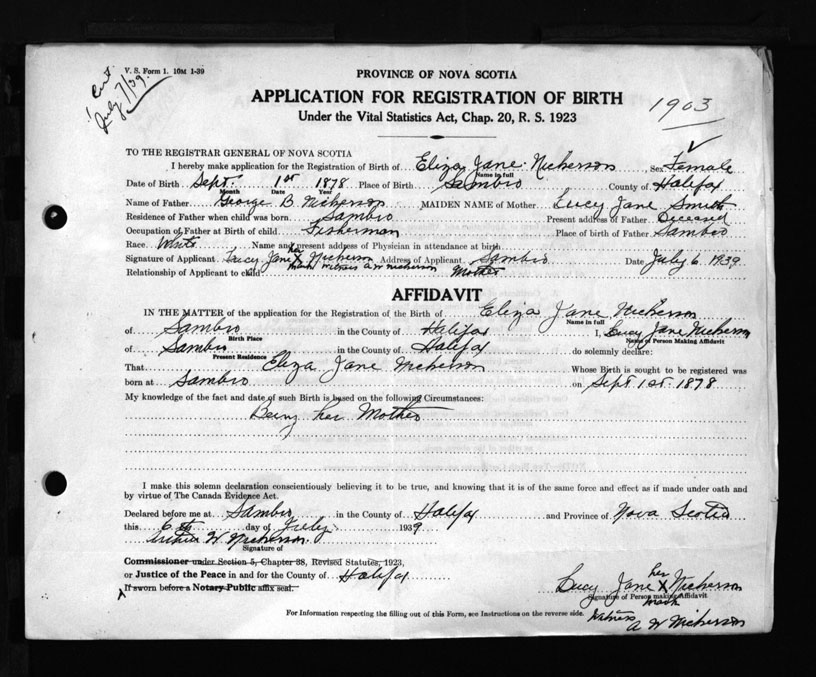 V. S. Form 1. 10M 1-39
Cert
July 7/39
PROVINCE OF NOVA SCOTIA
APPLICATION FOR REGISTRATION OF BIRTH
1903
Under the Vital Statistics Act, Chap. 20, R. S. 1923
TO THE REGISTRAR GENERAL OF NOVA SCOTIA
I hereby make application for the Registration of Birth of Eliza Jane Nickerson Sex Female
Name in full
Date of Birth Sept. 1st 1878 Place of Birth Sambro County of Halifax
Month Date Year
Name of Father George B Nickerson MAIDEN NAME of Mother Lucy Jane Smith
Residence of Father when child was born Sambro Present address of Father Deceased
Occupation of Father at Birth of child Fisherman Place of birth of Father Sambro
Race White Name and present address of Physician in attendance at birth
Signature of Applicant Lucy Jane her X mark Nickerson Address of Applicant Sambro Date July 6 1939
witness A W Nickerson
Relationship of Applicant to child Mother
AFFIDAVIT
IN THE MATTER of the application for the Registration of the Birth of Eliza Jane Nickerson
Name in full
of Sambro in the County of Halifax I, Lucy Jane Nickerson
Birth Place Name of Person Making Affidavit
of Sambro in the County of Halifax do solemnly declare:
Present Residence
That Eliza Jane Nickerson Whose Birth is sought to be registered was
born at Sambro on Sept 1st 1878
My knowledge of the fact and date of such Birth is based on the following Circumstances:
Being her Mother
I make this solemn declaration conscientiously believing it to be true, and knowing that it is of the same force and effect as if made under oath and
by virtue of The Canada Evidence Act.
Declared before me at Sambro in the County of Halifax and Province of Nova Scotia
this 6th day of July 1939
Arthur W Nickerson.
Signature of
Commissioner under Section 5, Chapter 38, Revised Statutes, 1923,
or Justice of the Peace in and for the County of Halifax
If sworn before a Notary Public affix seal.
Lucy Jane her X mark Nickerson
Signature of Person making Affidavit
For Information respecting the filling out of this Form, see Instructions on the reverse side.
Witness
A W Nickerson